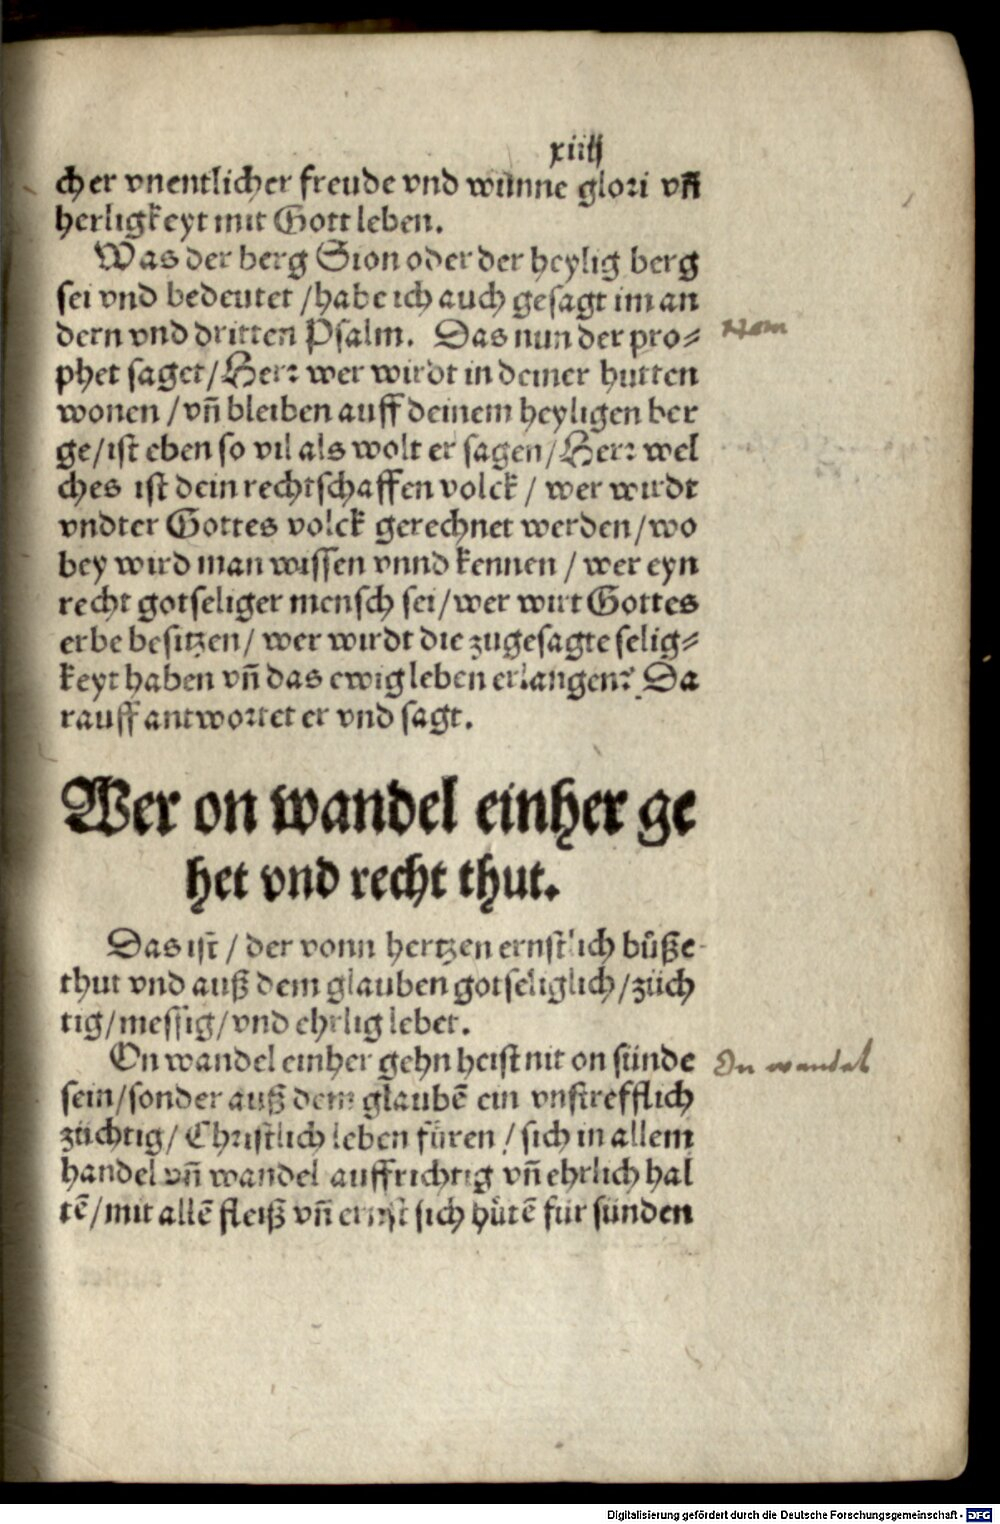 xiiij
cher vnentlicher freude vnd wunne glori vñ
herligkeyt mit Gott leben.
Was der berg Sion oder der heylig berg
sei vnd bedeutet / habe ich auch gesagt im an
dern vnd dritten Psalm. Das nun der pro⸗
phet saget / Herr wer wirdt in deiner hutten
wonen / vñ bleiben auff deinem heyligen ber
ge / ist eben so vil als wolt er sagen / Herr wel
ches ist dein rechtschaffen volck / wer wirdt
vndter Gottes volck gerechnet werden / wo
bey wird man wissen vnnd kennen / wer eyn
recht gotseliger mensch sei / wer wirt Gottes
erbe besitzen / wer wirdt die zugesagte selig⸗
keyt haben vñ das ewig leben erlangen? Da
rauff antwortet er vnd sagt.
Wer on wandel einher ge
het vnd recht thut.
Das ist / der vonn hertzen ernstlich bůße
thut vnd auß dem glauben gotseliglich / züch
tig / messig / vnd ehrlig lebet.
On wandel einher gehn heist nit on sünde
On wandel
sein / sonder auß dem glaubē ein vnstrefflich
züchtig / Christlich leben füren / sich in allem
handel vñ wandel auffrichtig vñ ehrlich hal
tē / mit allē fleiß vñ ernst sich hütē für sünden
Digitalisierung gefördert durch die Deutsche Forschungsgemeinschaft - DFG